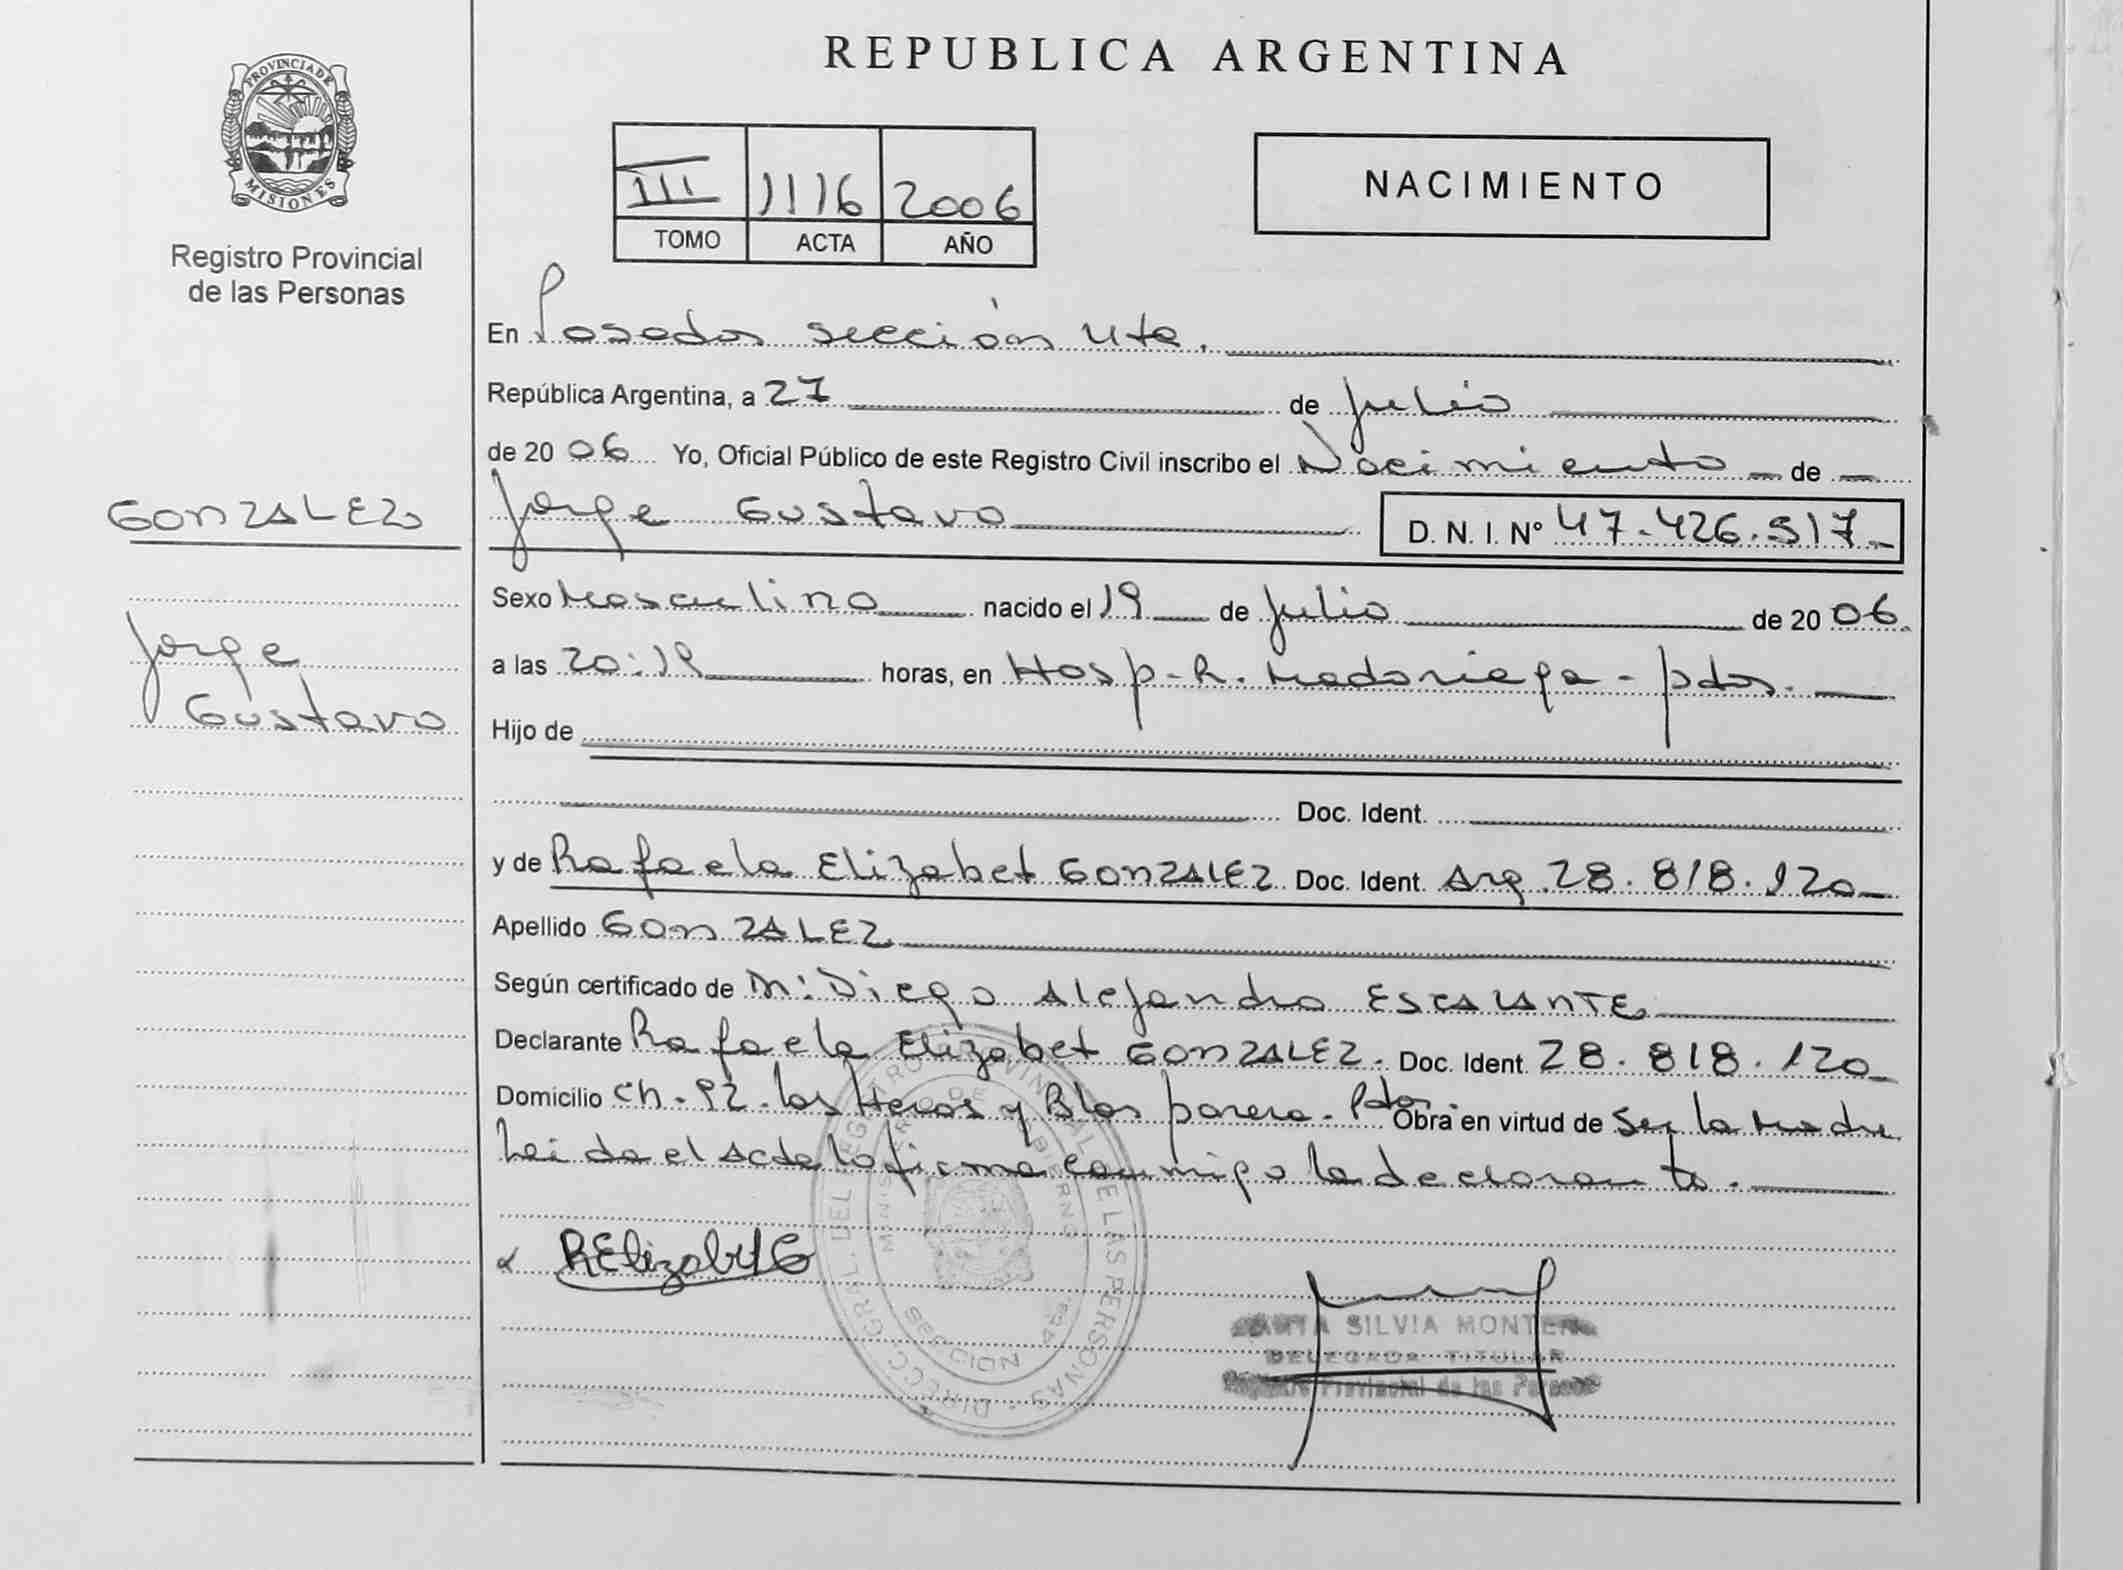 REPUBLICA ARGENTINA
PROVINCIA DE
MISIONES
Registro Provincial
de las Personas
III 1116 2006
TOMO ACTA AÑO
NACIMIENTO
En Posadas sección 4ta.
República Argentina, a 27 de Julio
de 20 06 Yo, Oficial Público de este Registro Civil inscribo el Nacimiento de
GONZALEZ
Jorge Gustavo D. N. I. Nº 47.426.517.
Sexo Masculino nacido el 19 de Julio de 20 06.
Jorge
Gustavo
a las 20:19 horas, en Hosp. R. Madariaga - pdas.
Hijo de
Doc. Ident.
y de Rafaela Elizabet GONZALEZ Doc. Ident. Arg. 28.818.120
Apellido GONZALEZ
Según certificado de M: Diego Alejandro ESCALANTE
Declarante Rafaela Elizabet GONZALEZ. Doc. Ident. 28.818.120
Domicilio Ch. 92. los Heros y Blas parera. Pdas. Obra en virtud de Ser la Madre
Leida el Acta la firma conmigo la declarante.
DIRECC. GRAL. DEL REGISTRO PROVINCIAL DE LAS PERSONAS
MINISTERIO DE GOBIERNO
SECCION 4ta
SILVIA MONTE
DELEGADA TITULAR
Registro Provincial de las Personas